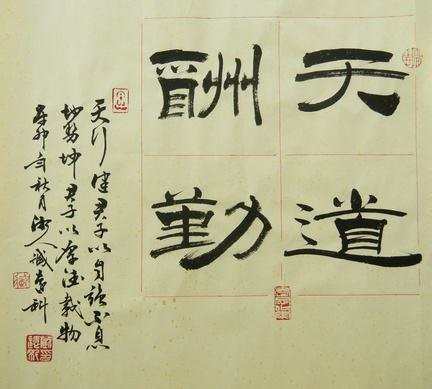 天道
酬勤
天行健君子以自强不息
地势坤君子以厚德載物
辛卯年秋月